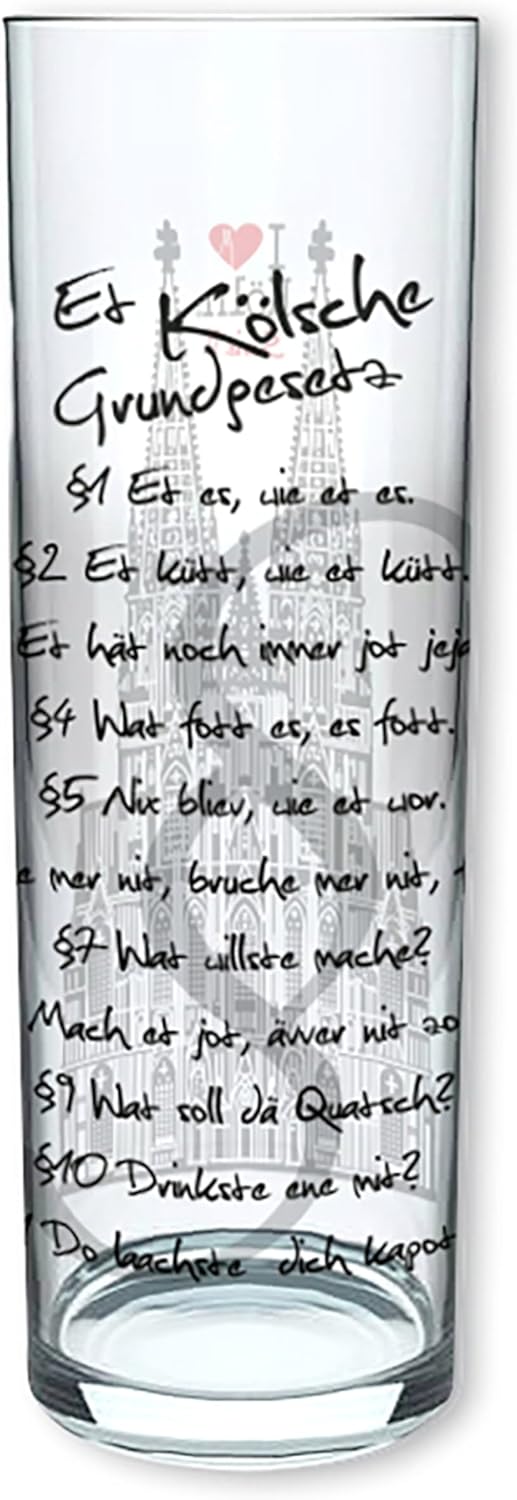 Et Kölsche
Grundgesetz
§1 Et es, wie et es.
§2 Et kütt, wie et kütt.
Et hät noch immer jot jeje
§4 Wat fott es, es fott.
§5 Nix bliev, wie et wor.
e mer nit, bruche mer nit,
§7 Wat willste mache?
Mach et jot, ävver nit zo
§9 Wat soll dä Quatsch?
§10 Drinkste ene mit?
Do laachste dich kapot